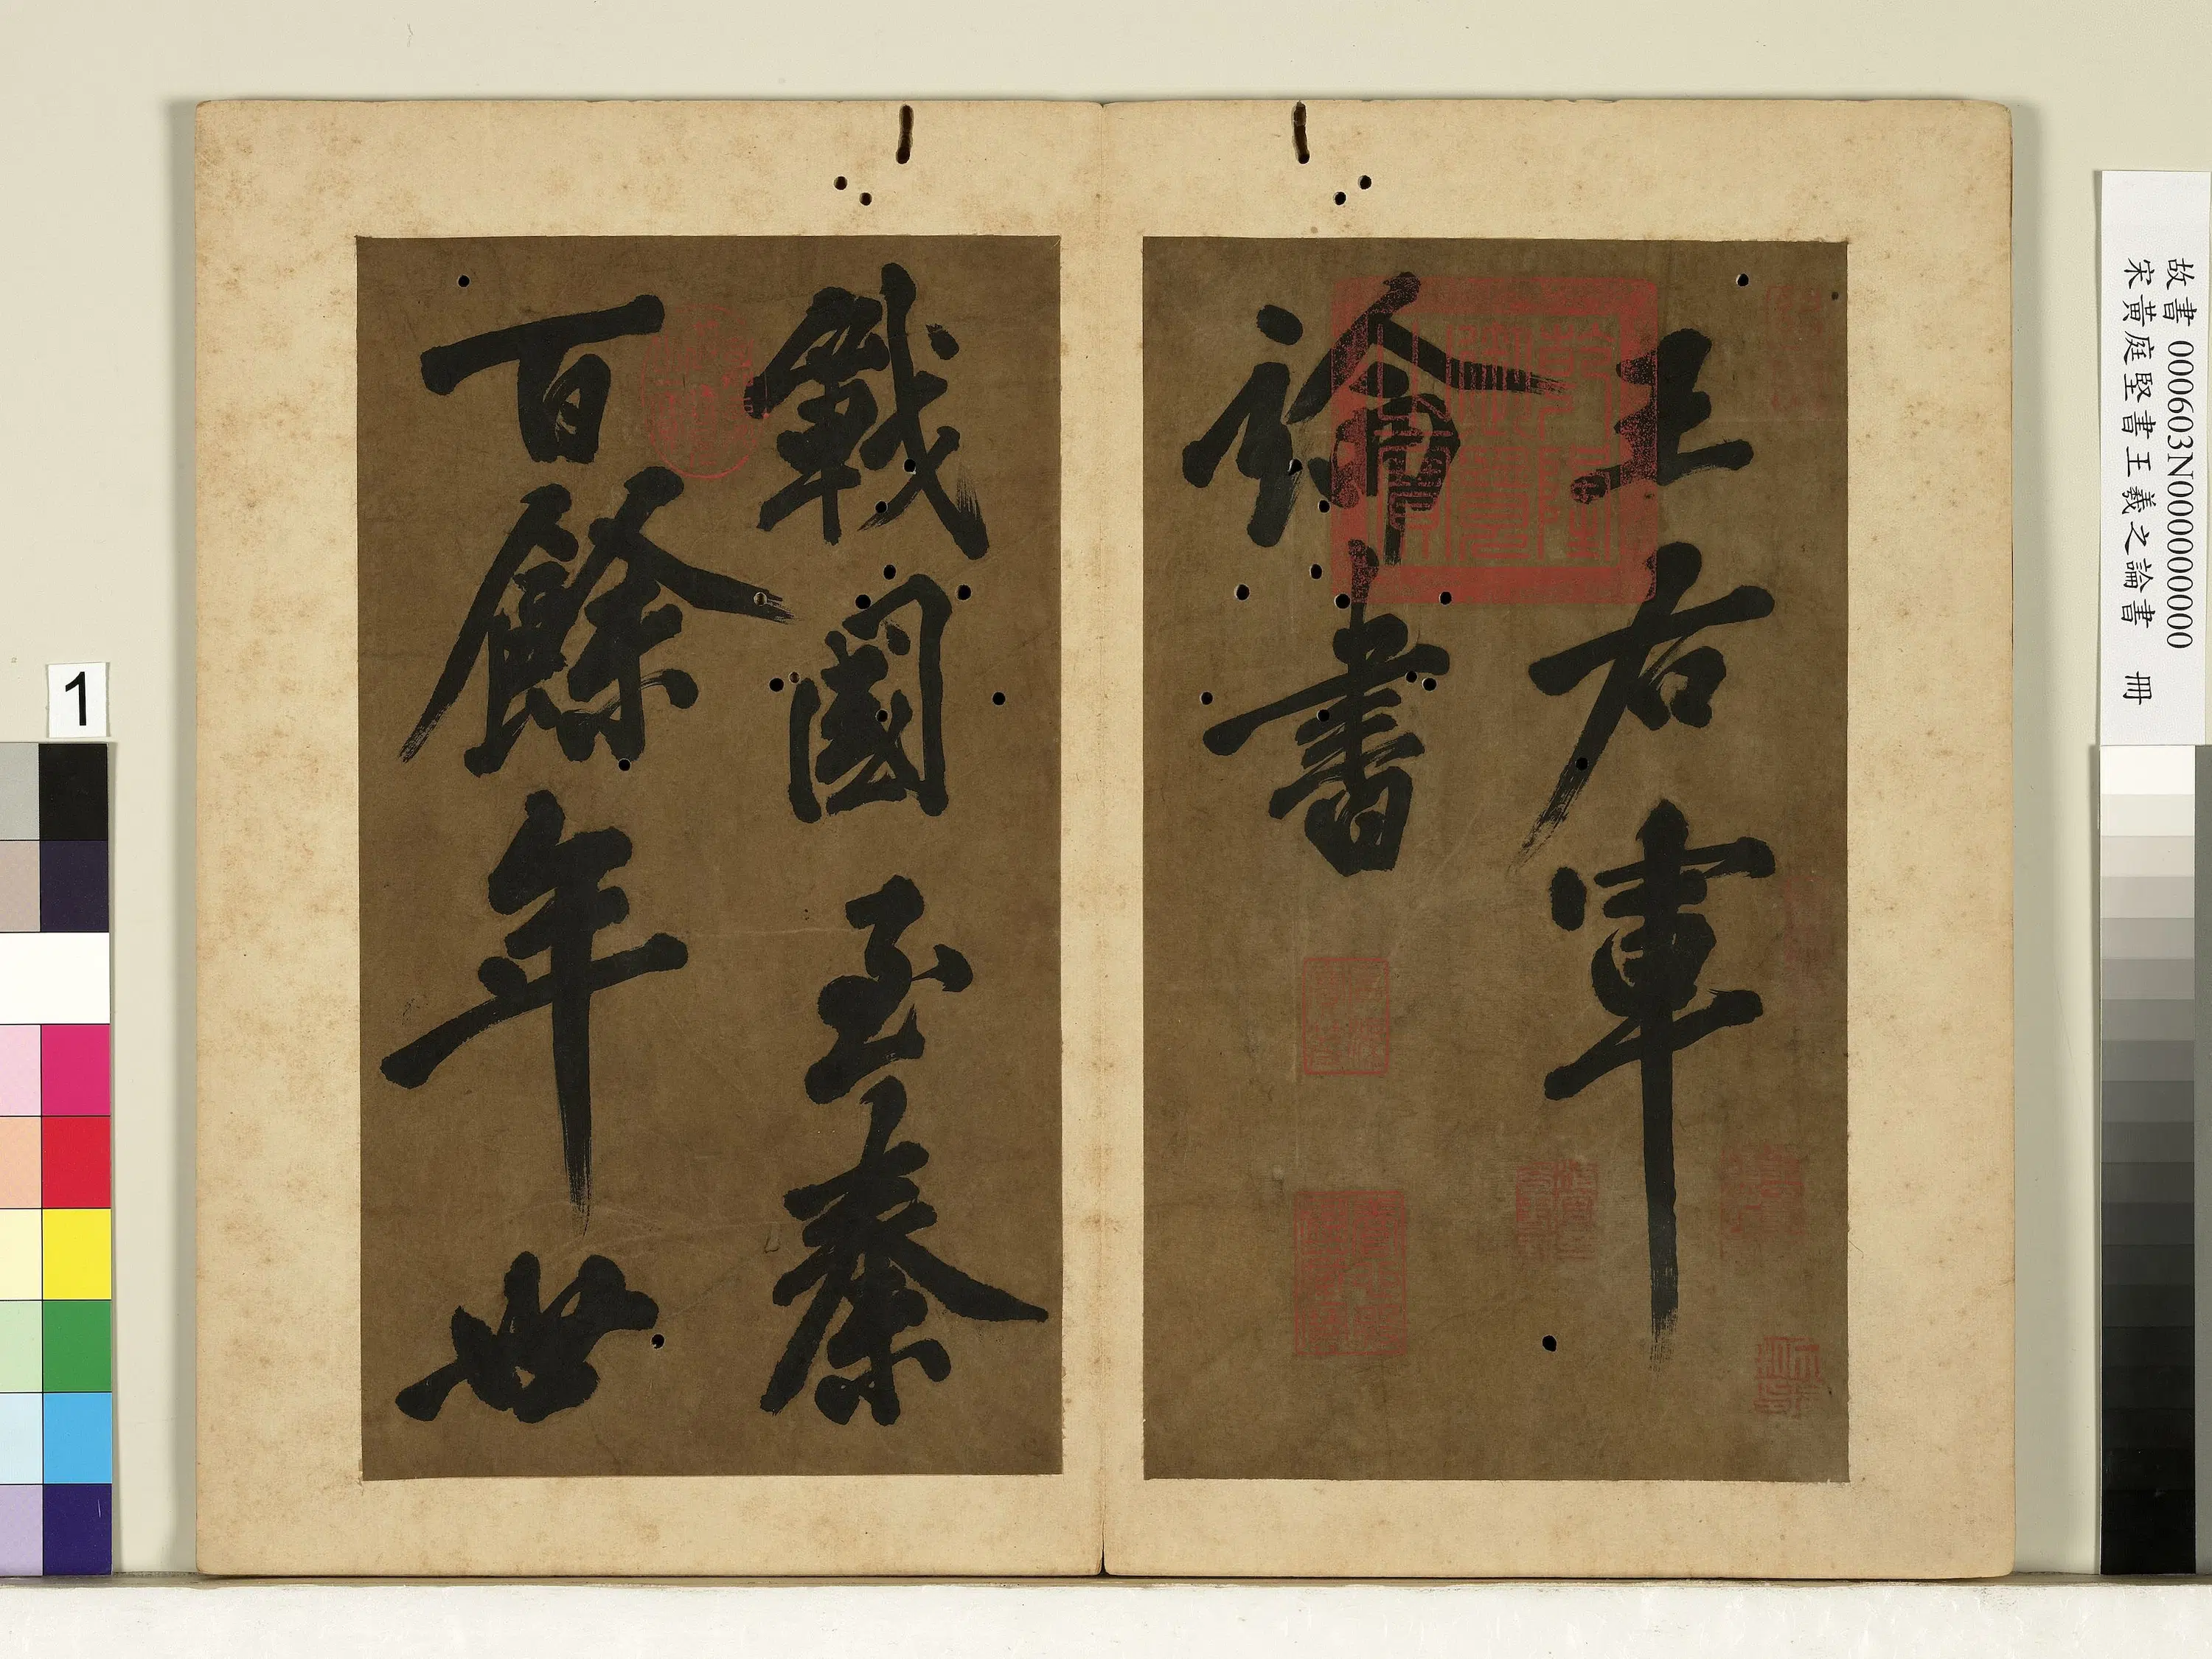 故書 000603N000000000
宋黃庭堅書王羲之論書 冊
王右軍
論書
戰國至秦
百餘年世
1